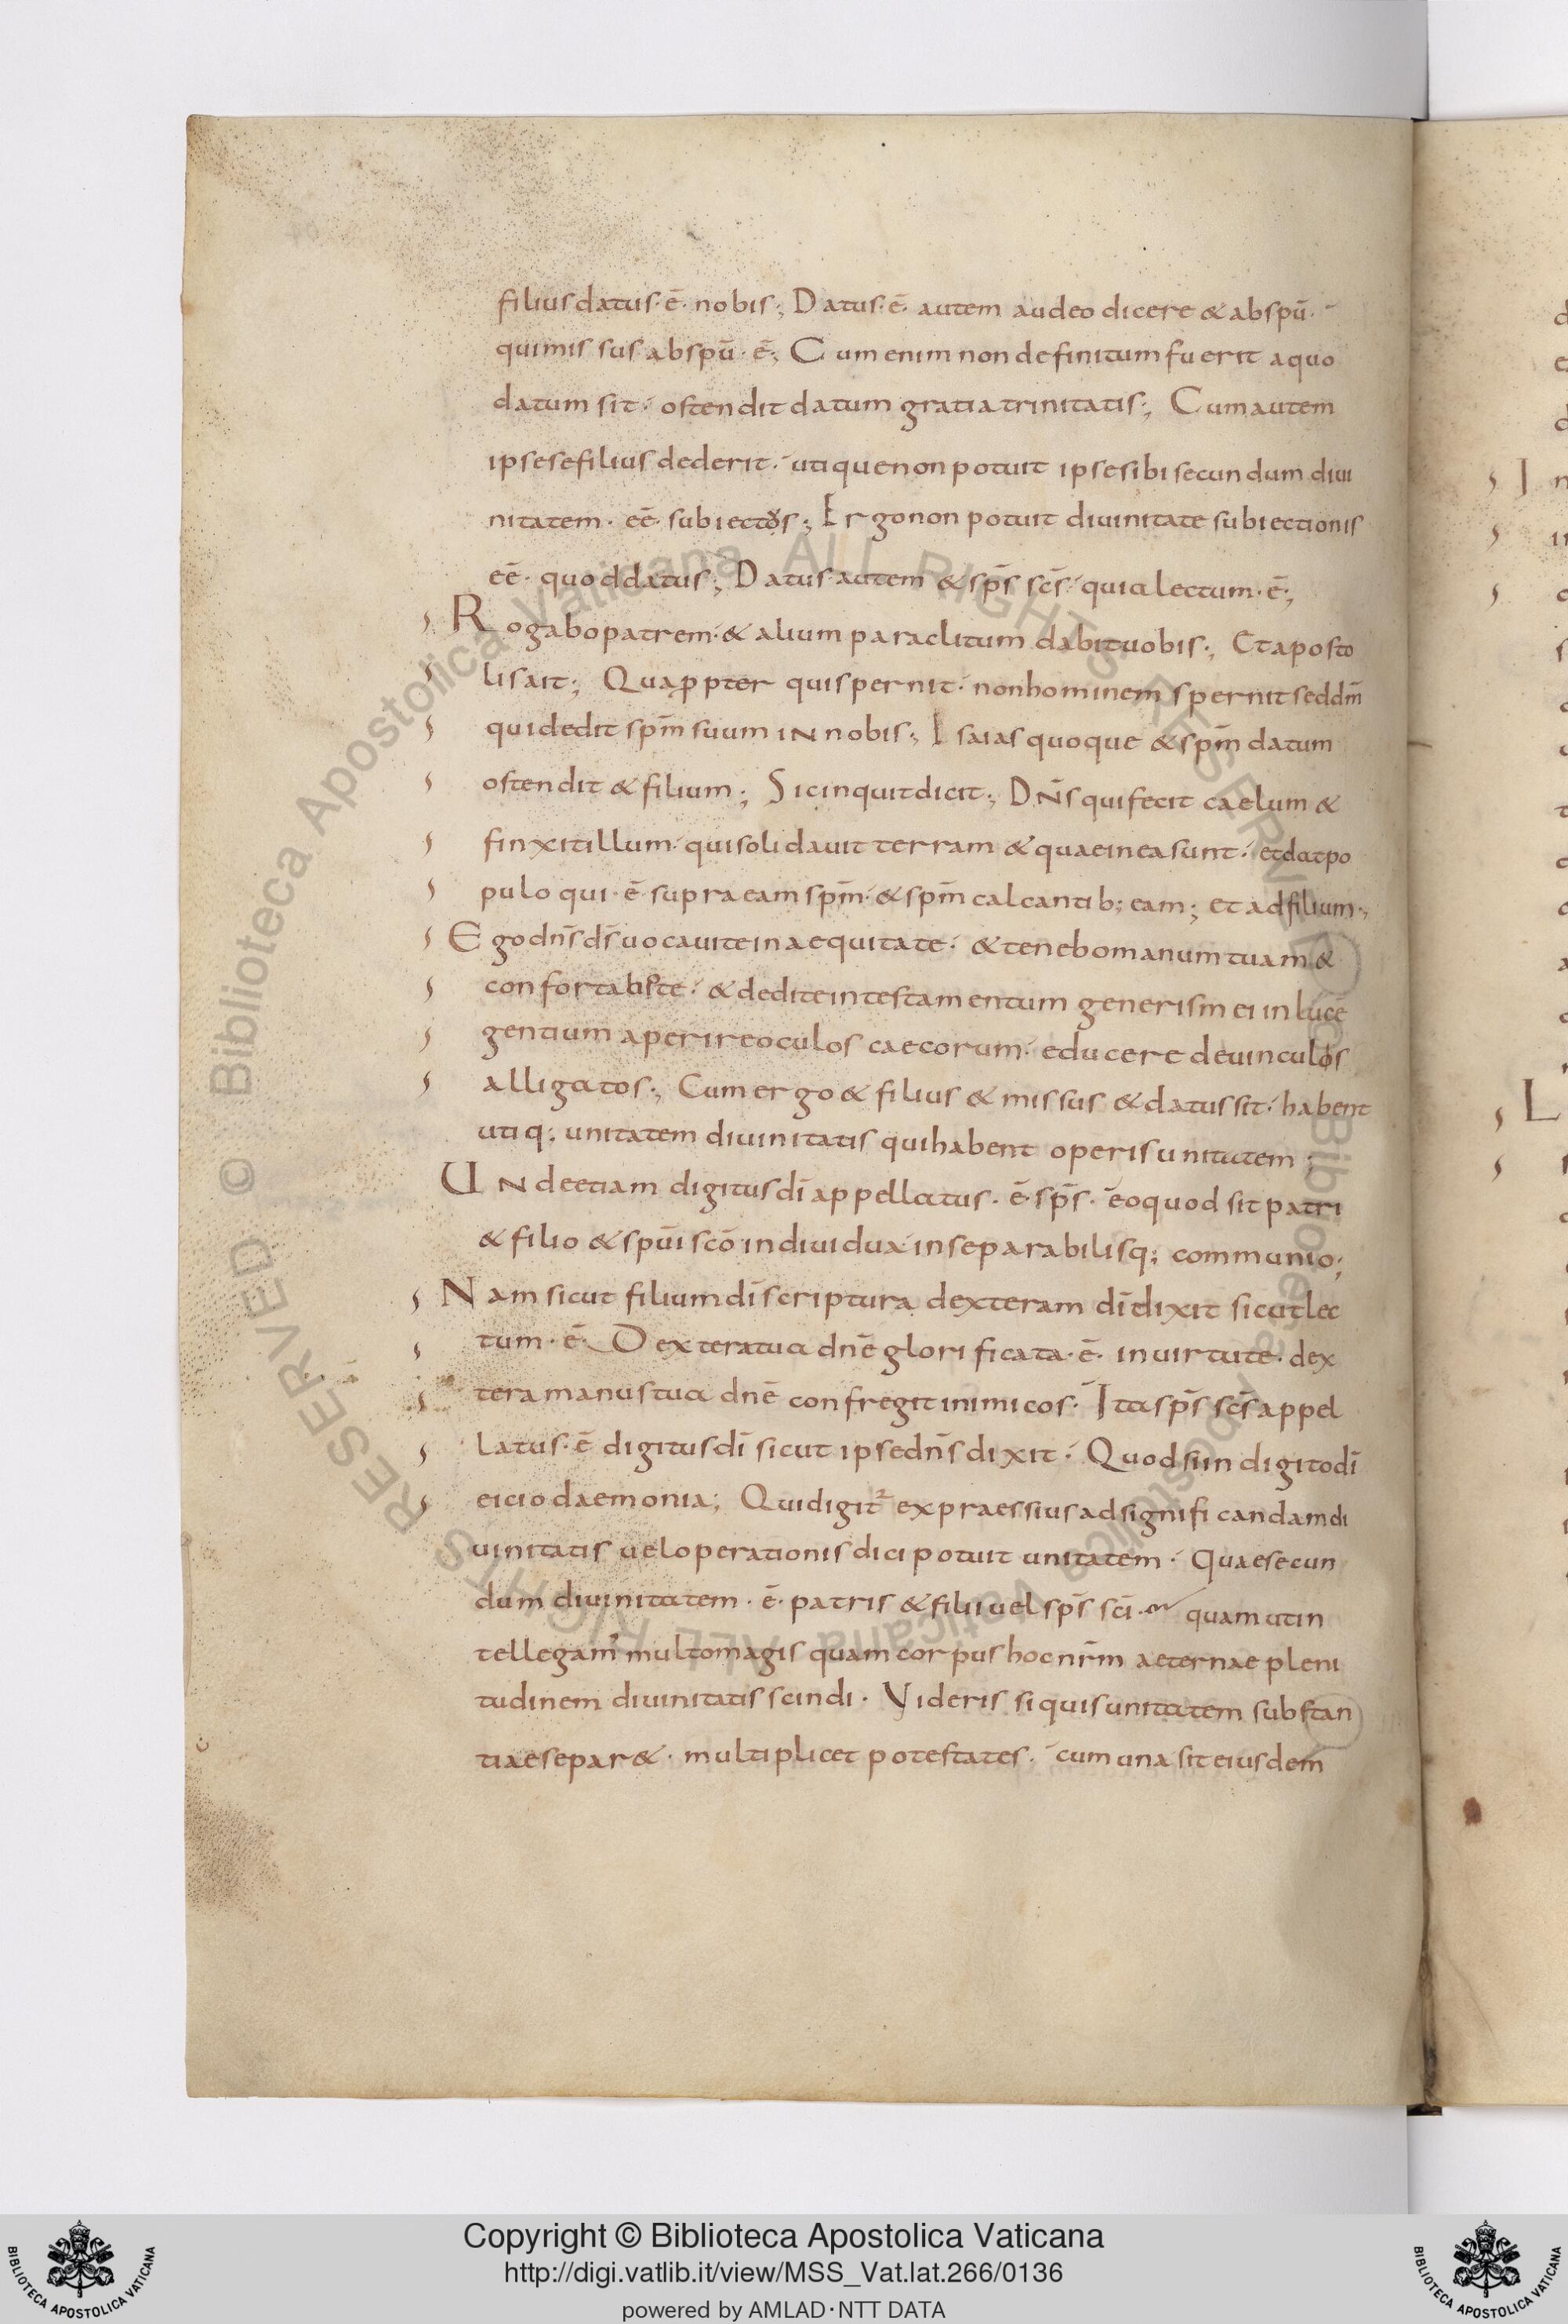 filius datus·ē· nobis; Datus·ē· autem audeo dicere & ab spū·
qui missus ab spū·ē·; Cum enim non definitum fuerit a quo
datum sit· ostendit datum gratia trinitatis·; Cum autem
ipse se filius dederit· utique non potuit ipse sibi secundum diui
nitatem· eē· subiectus; Ergo non potuit diuinitate subiectionis
eē· quod datus; Datus autem & sp̄s sc̄s· quia lectum·ē·;
Rogabo patrem· & alium paraclitum dabit uobis·; Et aposto
lis ait; Quapp̄ter qui spernit· non hominem spernit sed dm̄
qui dedit spm̄ suum iN nobis·; Isaias quoque & spm̄ datum
ostendit & filium; Sic inquit dicit; DN̄s qui fecit caelum &
finxit illum· qui solidauit terram & quae in ea sunt· et dat po
pulo qui·ē· supra eam spm̄· & spm̄ calcantib; eam; et ad filium·;
Ego dn̄s ds̄ uocaui te in aequitate· & tenebo manum tuam &
confortabo te· & dedi te in testamentum generis mei in lucē
gentium aperire oculos caecorum· educere de uinculis
alligatos·; Cum ergo & filius & missus & datus sit· habent
utiq; unitatem diuinitatis qui habent operis unitatem;
UNde etiam digitus dī appellatus·ē· sp̄s· eo quod sit patri
& filio & spūi scō indiuidua inseparabilisq; communio;
Nam sicut filium dī scriptura dexteram dī dixit sicut lec
tum·ē· Dextera tua dnē glorificata·ē· in uirtute· dex
tera manus tua dnē confregit inimicos· Ita sp̄s sc̄s appel
latus·ē digitus dī sicut ipse dn̄s dixit· Quod si in digito dī
eicio daemonia; Qui digit² expraessius ad significandam di
uinitatis uel operationis dici potuit unitatem· Quae secun
dum diuinitatem·ē· patris & filii uel sp̄s scī· quam ut in
tellegam' multo magis quam corpus hoc nr̄m aeternae pleni
tudinem diuinitatis scindi· Videris si quis unitatem substan
tiae separ&· multiplicet potestates· cum una sit eiusdem
© Biblioteca Apostolica Vaticana ALL RIGHTS RESERVED © Biblioteca Apostolica Vaticana ALL RIGHTS RESERVED
Copyright © Biblioteca Apostolica Vaticana
http://digi.vatlib.it/view/MSS_Vat.lat.266/0136
powered by AMLAD·NTT DATA
BIBLIOTECA APOSTOLICA VATICANA
BIBLIOTECA APOSTOLICA VATICANA